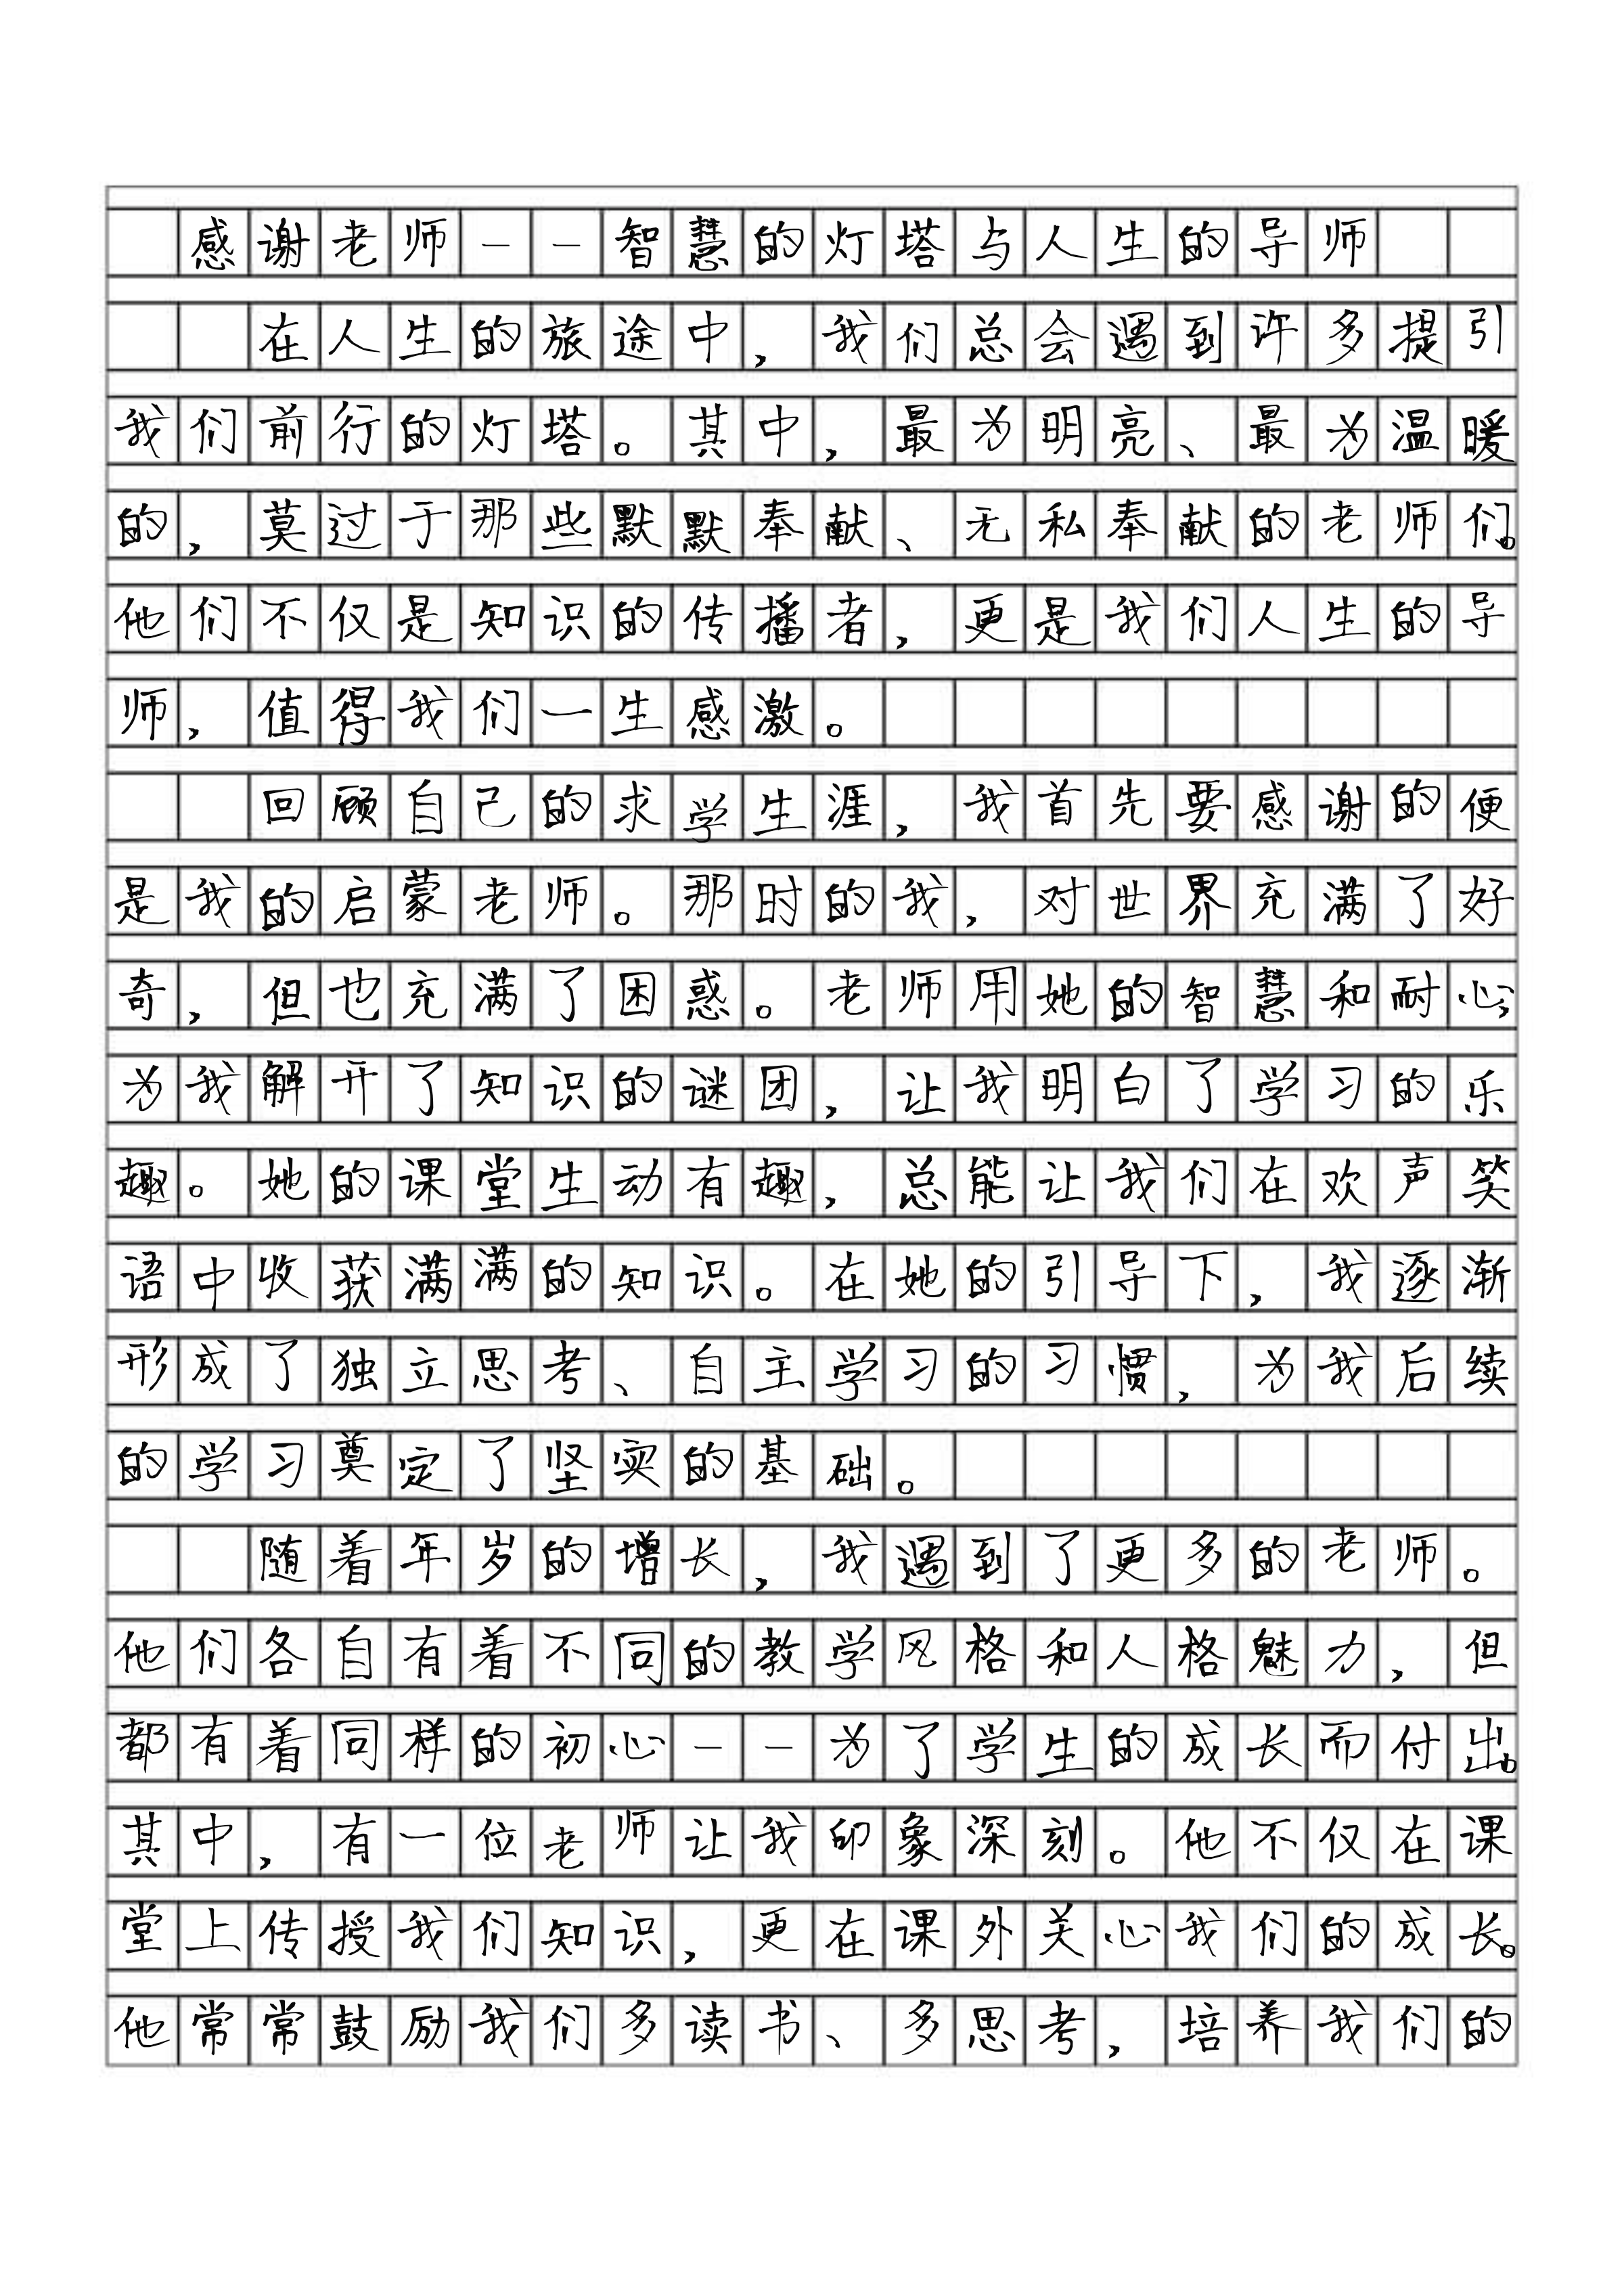 感谢老师——智慧的灯塔与人生的导师
在人生的旅途中，我们总会遇到许多提引
我们前行的灯塔。其中，最为明亮、最为温暖
的，莫过于那些默默奉献、无私奉献的老师们。
他们不仅是知识的传播者，更是我们人生的导
师，值得我们一生感激。
回顾自己的求学生涯，我首先要感谢的便
是我的启蒙老师。那时的我，对世界充满了好
奇，但也充满了困惑。老师用她的智慧和耐心，
为我解开了知识的谜团，让我明白了学习的乐
趣。她的课堂生动有趣，总能让我们在欢声笑
语中收获满满的知识。在她的引导下，我逐渐
形成了独立思考、自主学习的习惯，为我后续
的学习奠定了坚实的基础。
随着年岁的增长，我遇到了更多的老师。
他们各自有着不同的教学风格和人格魅力，但
都有着同样的初心——为了学生的成长而付出。
其中，有一位老师让我印象深刻。他不仅在课
堂上传授我们知识，更在课外关心我们的成长。
他常常鼓励我们多读书、多思考，培养我们的